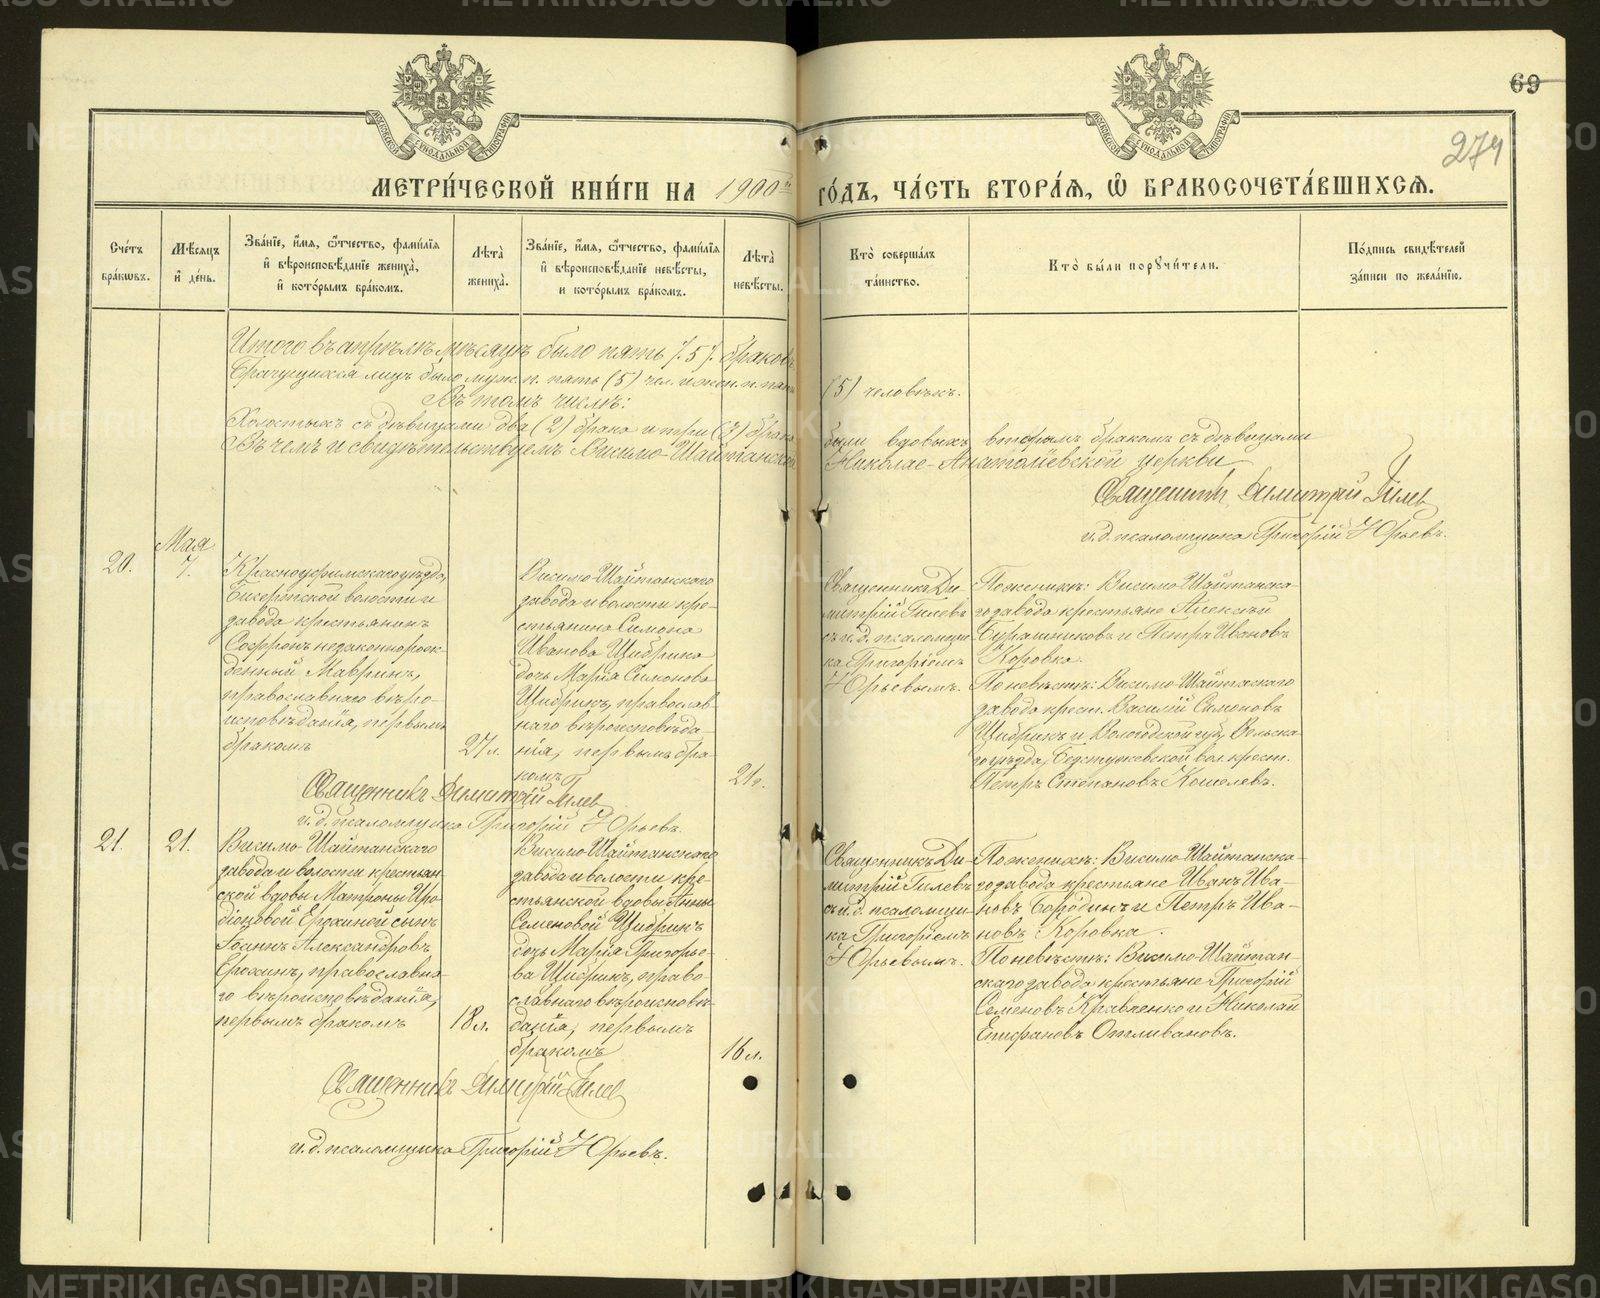 69
274
МЕТРИ́ЧЕСКОЙ КНИ́ГИ НА 1900й ГО́ДЪ, ЧА́СТЬ ВТОРА́Я, Ѡ҆ БРАКОСОЧЕТА́ВШИХСЯ.
Сче́тъ бра́кѡвъ.
Мѣ́сяцъ и҆ де́нь.
Зва́нїе, и҆́мя, ѻ҆́тчество, фами́лїя и҆ вѣроисповѣ́данїе жениха̀, и҆ кото́рымъ бра́комъ.
Лѣ́та жениха̀.
Зва́нїе, и҆́мя, ѻ҆́тчество, фами́лїя и҆ вѣроисповѣ́данїе невѣ́сты, и кото́рымъ бра́комъ.
Лѣ́та невѣ́сты.
Кто̀ соверша́лъ та́инство.
Кто̀ бы́ли поручи́тели.
По́дпись свидѣ́телей за́писи по жела́нїю.
Итого въ апрѣлѣ мѣсяцѣ было пять /.5/. браковъ
Брачущихся лицъ было муж. п. пять (5) чел. и жен. п. пять (5) человѣкъ.
Въ томъ числѣ:
Холостыхъ съ дѣвицами два (2) брака и три (3) брака были вдовыхъ вторымъ бракомъ съ дѣвицами
Въ чемъ и свидѣтельствуемъ Висимо-Шайтанской Николае-Анатоліевской церкви
Священникъ Димитрій Гилев
и.д. псаломщика Григорій Юрьевъ.
20.
Мая
7.
Красноуфимскаго уѣзда,
Бисертской волости и
завода крестьянинъ
Софронъ незаконнорож-
денный Мавринъ,
православнаго вѣро-
исповѣданія, первымъ
бракомъ
27 л.
Висимо-Шайтанскаго
завода и волости кре-
стьянина Симона
Иванова Цибрика
дочь Марія Симонова
Цибрикъ, православ-
наго вѣроисповѣда-
нія, первымъ бра-
комъ
21 г.
Священникъ Ди-
митрій Гилевъ
съ и.д. псаломщи-
ка Григоріемъ
Юрьевымъ.
По женихѣ: Висимо-Шайтанска-
го завода крестьяне Алексѣй
Бурашниковъ и Петръ Ивановъ
Коровка.
По невѣстѣ: Висимо-Шайтаскаго
завода крест. Василій Симоновъ
Цибрикъ и Вологодской губ., Вельска-
го уѣзда, Бестужевской вол. крест.
Петръ Степановъ Кошелевъ.
Священникъ Димитрій Гилев
и.д. псаломщика Григорій Юрьевъ.
21.
21.
Висимо-Шайтанскаго
завода и волости крестьян-
ской вдовы Матроны Иро-
діоновой Ерохиной сынъ
Іоаннъ Александровъ
Ерохинъ, православна-
го вѣроисповѣданія,
первымъ бракомъ
18 л.
Висимо-Шайтанскаго
завода и волости кре-
стьянской вдовы Анны
Семеновой Цибрикъ
дочь Марія Григорье-
ва Цибрикъ, право-
славнаго вѣроисповѣ-
данія, первымъ
бракомъ
16 л.
Священникъ Ди-
митрій Гилевъ
съ и.д. псаломщи-
ка Григоріемъ
Юрьевымъ.
По женихѣ: Висимо-Шайтанска-
го завода крестьяне Иванъ Ива-
новъ Бородинъ и Петръ Ива-
новъ Коровка.
По невѣстѣ: Висимо-Шайтан-
скаго завода крестьяне Григорій
Семеновъ Кравченко и Николай
Епифановъ Отливановъ.
Священникъ Димитрій Гилев
и.д. псаломщика Григорій Юрьевъ.
METRIKI.GASO-URAL.RU